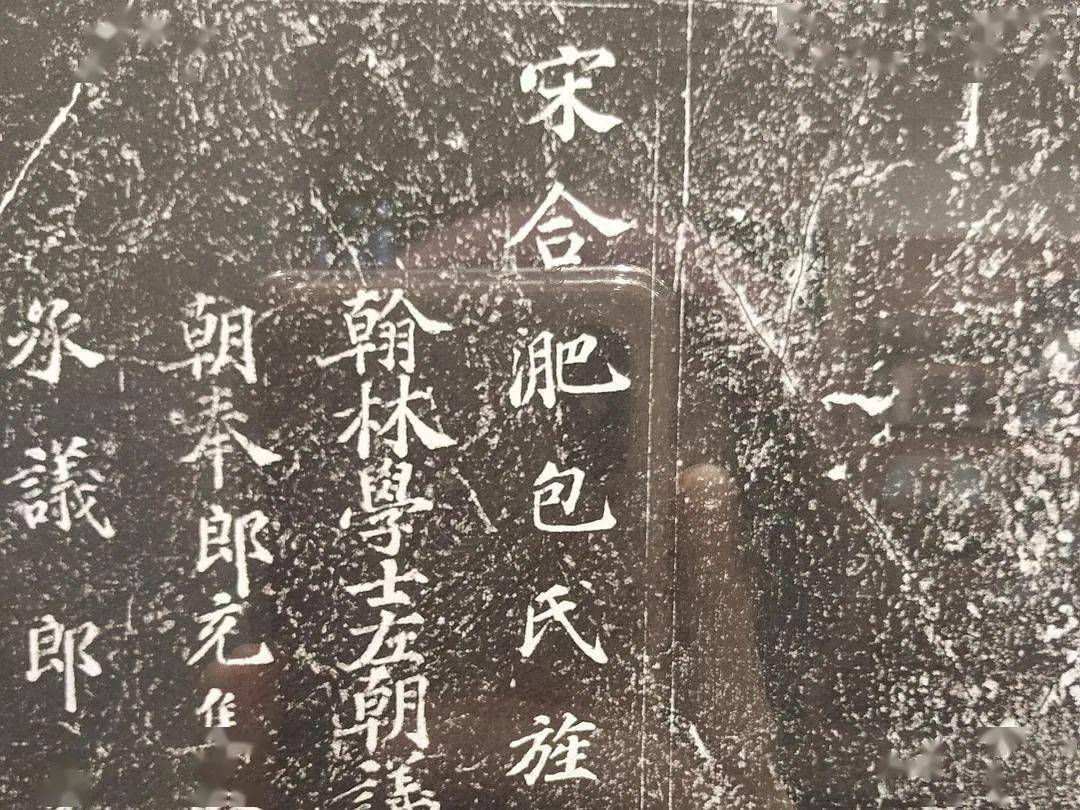 宋合淝包氏旌
翰林學士左朝議
朝奉郎充集
承議郎